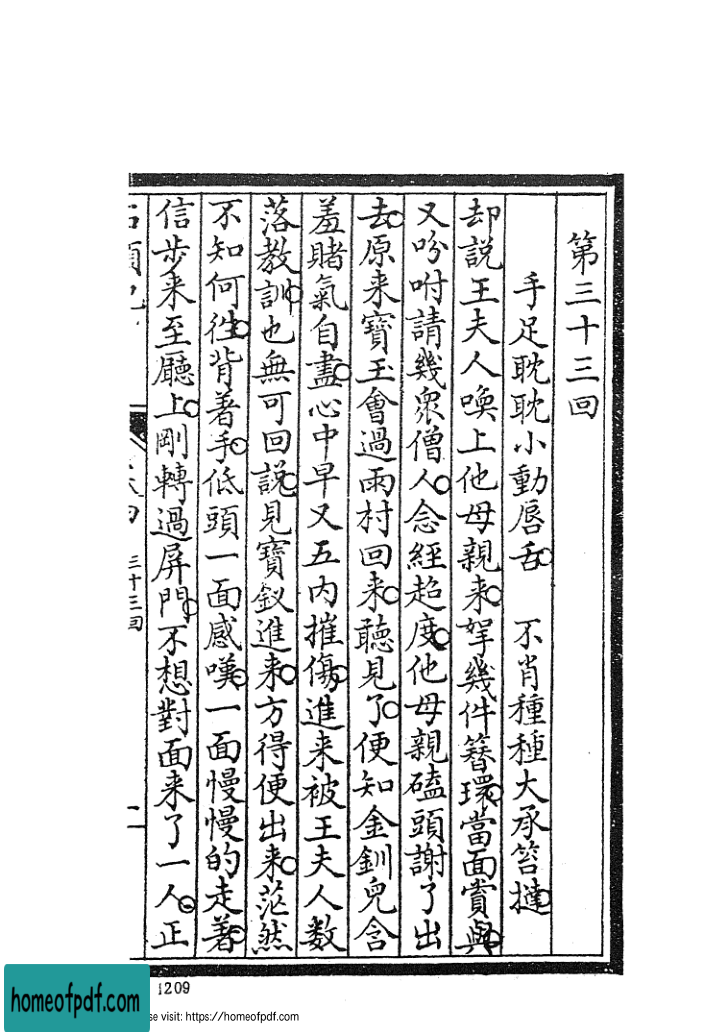 第三十三回
手足耽耽小動唇舌 不肖種種大承笞撻
却說王夫人喚上他母親来拏幾件簪環當面賞與
又吩咐請幾衆僧人念經超度他母親磕頭謝了出
去原来寶玉會過雨村回来聽見了便知金釧兒含
羞賭氣自盡心中早又五内摧傷進来被王夫人数
落教訓也無可回說見寶釵進来方得便出来茫然
不知何徃背着手低頭一面感嘆一面慢慢的走着
信步来至廳上剛轉過屏門不想對面来了一人正
三十三回
1209
homeofpdf.com
se visit: https://homeofpdf.com